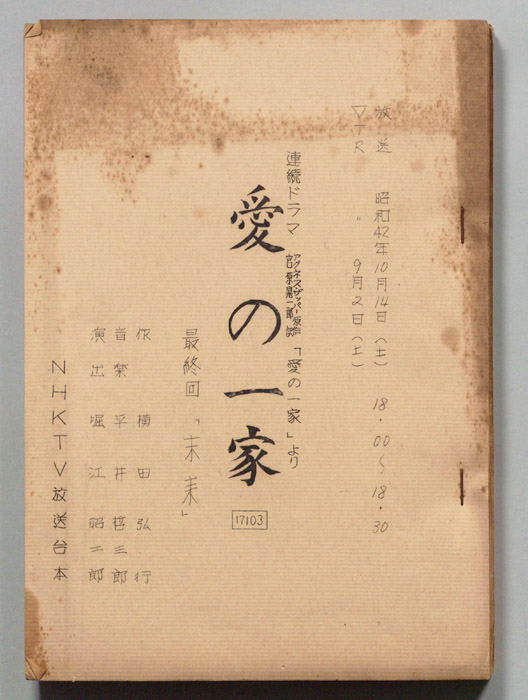 放送 昭和42年10月14日(土) 18・00〜18・30
VTR 〃 9月2日(土)
連続ドラマ アグネス・ザッパー原作 「愛の一家」より
愛の一家
17103
最終回「未来」
作 横田弘行
音楽 平井哲三郎
演出 堀江昭二郎
NHKTV放送台本